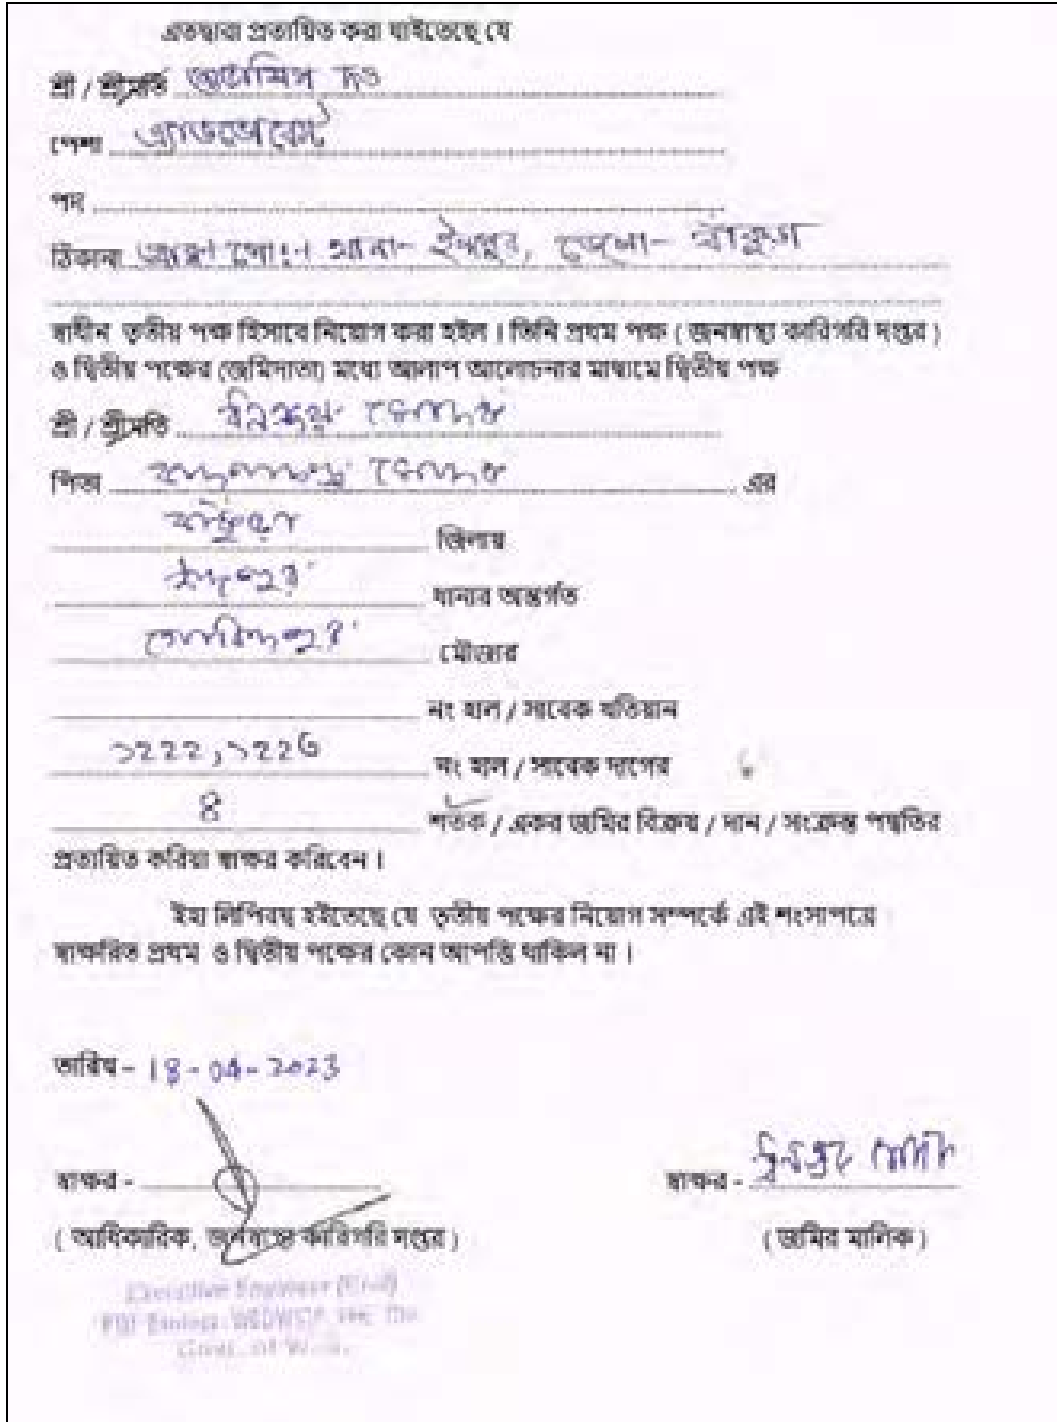 এতদ্বারা প্রত্যয়িত করা যাইতেছে যে
শ্রী / শ্রীমতি দত্ত
পেশা এ্যাডভোকেট
পদ
ঠিকানা থানা- ইন্দপুর, জেলা- বাঁকুড়া
স্বাধীন তৃতীয় পক্ষ হিসাবে নিয়োগ করা হইল । তিনি প্রথম পক্ষ ( জনস্বাস্থ্য কারিগরি দপ্তর )
ও দ্বিতীয় পক্ষের (জমিদাতা) মধ্যে আলাপ আলোচনার মাধ্যমে দ্বিতীয় পক্ষ
শ্রী / শ্রীমতি
পিতা এর
বাঁকুড়া জিলায়
ইন্দপুর থানার অন্তর্গত
গোবিন্দপুর মৌজার
নং হাল / সাবেক খতিয়ান
নং হাল / সাবেক দাগের
৪ শতক / একর জমির বিক্রয় / দান / সংক্রান্ত পদ্ধতির
প্রত্যয়িত করিয়া স্বাক্ষর করিবেন ।
ইহা লিপিবদ্ধ হইতেছে যে তৃতীয় পক্ষের নিয়োগ সম্পর্কে এই শংসাপত্রে
স্বাক্ষরিত প্রথম ও দ্বিতীয় পক্ষের কোন আপত্তি থাকিল না ।
তারিখ - 18-04-2023
স্বাক্ষর - স্বাক্ষর -
( আধিকারিক, জনস্বাস্থ্য কারিগরি দপ্তর ) ( জমির মালিক )
Executive Engineer (Civil)
Govt. of W.B.